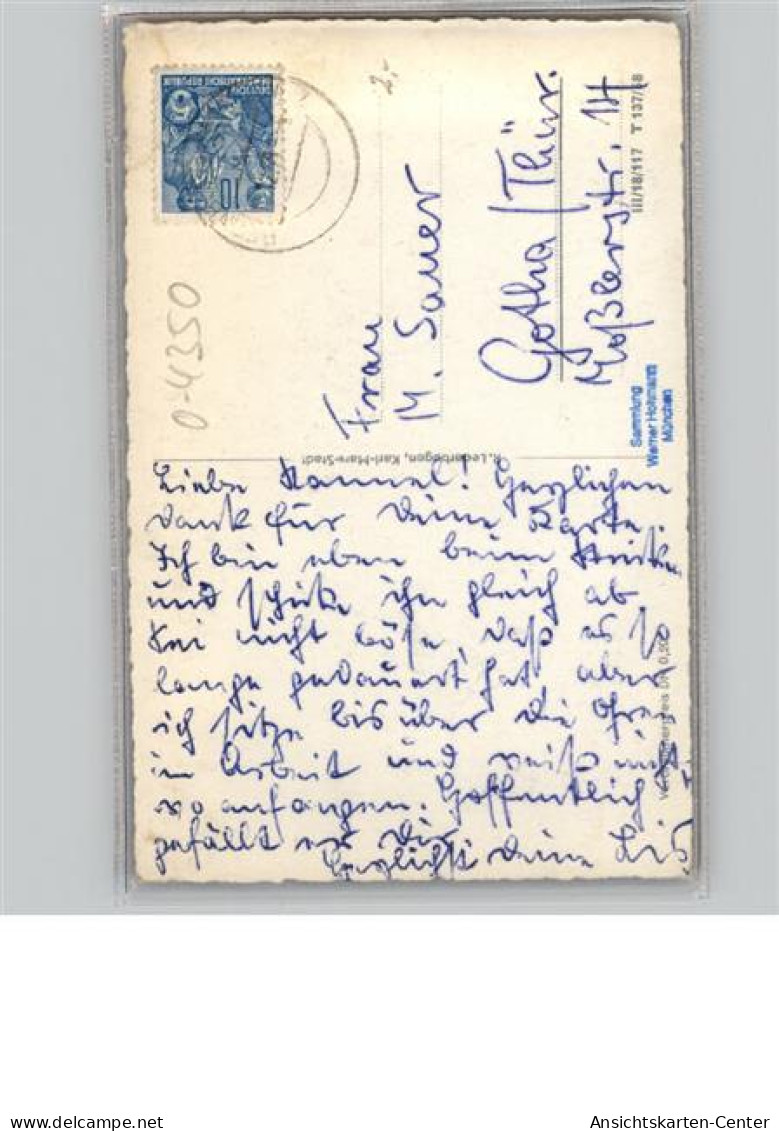 Liebe Hannel! Herzlichen
Dank für Deine Karte.
Ich bin eben beim
und schicke ihn gleich ab
Sei nicht böse, daß es so
lange gedauert hat, aber
ich sitze bis über die Ohren
in Arbeit und weiß nicht,
wo anfangen. Hoffentlich
gefällt er Dir
Herzlichst Deine Lis
Frau
M. Sauer
Gotha/Thür.
Moßlerstr. 14
DEUTSCHE
DEMOKRATISCHE REPUBLIK
10
5
2,-
0-4350
R. Lederbogen, Karl-Marx-Stadt
III/18/117 T 137/58
Sammlung
Werner Hofmann
München
Ansichtskarten-Center